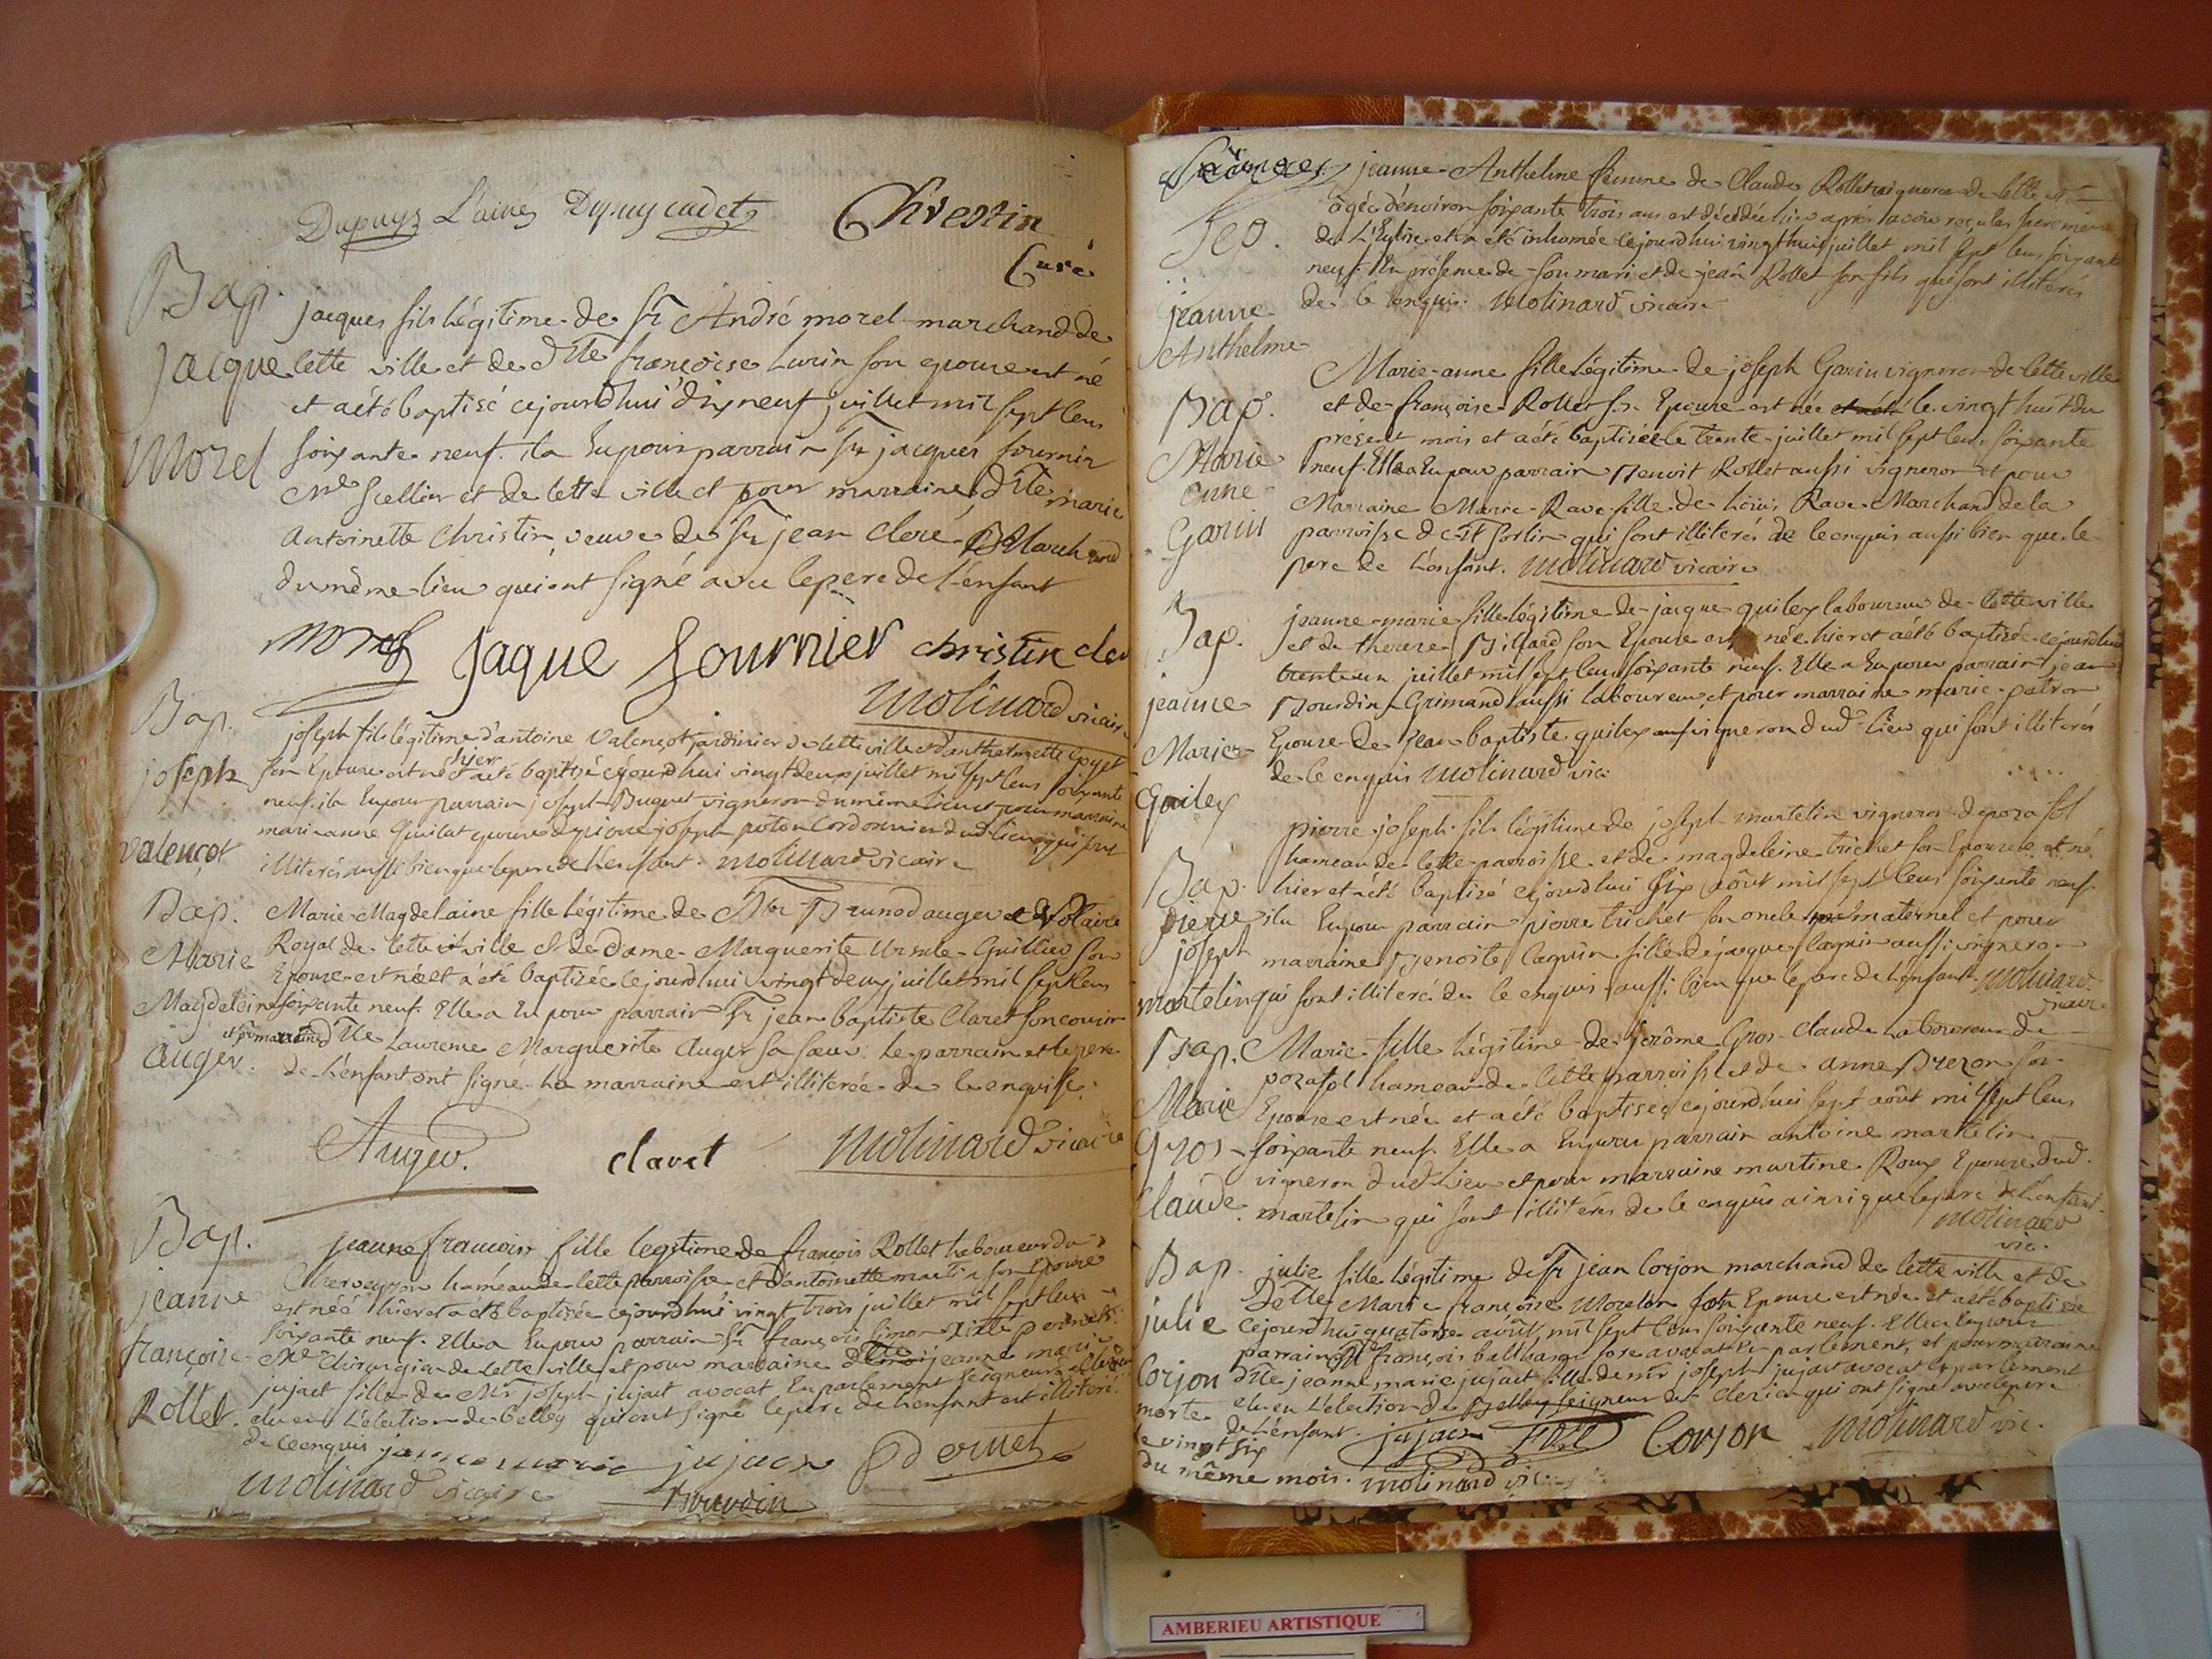 Dupuys L'ainé Dupuy cadet Christin
Curé
Bap.
jacque
Morel
jacques fils légitime de Sr André morel marchand de
cette ville et de dlle françoise Lurin son epouse est né
et a été baptisé cejourdhui dixneuf juillet mil sept cens
soixante neuf. il a Eu pour parrain Sr jacques fournier
Me Sellier et de cette ville et pour marraine dlle marie
Antoinette Christin, veuve de Sr jean cleré Marchand
du même lieu qui ont signé avec le pere de l'enfant
morel jaque fournier christin cler
molinard vicaire
Bap.
joseph
valençot
joseph fils légitime d'antoine Valençot jardinier de cette ville et d'anthelmette
son Epouse est né hier et a été baptisé cejourdhui vingt deux juillet mil sept cens soixante
neuf. il a Eu pour parrain joseph Buguet vigneron du même lieu et pour marraine
marianne Guilat epouse de pierre joseph cordonnier dud. lieu qui sont
illiterés aussi bien que le pere de l'enfant. molinard vicaire
Bap.
Marie
Magdeleine
auger.
Marie Magdelaine fille légitime de Sr Bruno d'auger Notaire
Royal de cette ville et de dame Marguerite Ursule Guillier son
Epouse est née et a été baptizée cejourdhui vingt deux juillet mil sept cens
soixante neuf. Elle a Eu pour parrain Sr jean baptiste Claret son cousin
et pr marraine dlle Laurence Marguerite Auger sa sœur. Le parrain et le pere
de l'enfant ont signé. La marraine est illiterée de ce enquise.
Auger. claret molinard vicaire
Bap.
jeanne
françoise
Rollet.
jeanne françoise fille legitime de françois Rollet laboureur du
hameau de cette parroisse et d'antoinette martin son Epouse
est née hier et a été baptisée cejourdhui vingt trois juillet mil sept cens
soixante neuf. Elle a Eu pour parrain Sr françois
Me chirurgien de cette ville et pour marraine dlle jeanne marie
jujat fille de Mr joseph jujat avocat En parlement seigneur
elu en L'election de belley qui ont signé le pere de l'enfant est illiteré
de ce enquis jeanne marie jujat Pernet
molinard vicaire Bourdin
Sep.
jeanne
Anthelme
jeanne Anthelme femme de Claude Rollet vigneron de cette
âgée d'environ soixante trois ans est décédée hier après avoir reçu les
de L'Eglise et a été inhumée cejourdhui vingt huit juillet mil sept cens soixante
neuf. En présence de son mari et de jean Rollet son fils qui sont illiterés
de ce enquis. molinard vicaire
Bap.
Marie
anne
Garin
Marie-anne fille légitime de joseph Garin vigneron de cette ville
et de françoise Rollet sa Epouse est née et a été le vingt huit du
présent mois et a été baptisée le trente juillet mil sept cens soixante
neuf. Elle a Eu pour parrain Benoit Rollet aussi vigneron et pour
Marraine Marie Rave fille de Louis Rave Marchand de la
parroisse de St Sorlin qui sont illiterés de ce enquis aussi bien que le
pere de L'enfant. molinard vicaire
Bap.
jeanne
Marie
Guiley
jeanne-marie fille légitime de jacque guiley laboureur de cette ville
et de therese Billard son Epouse est née hier et a été baptisée cejourdhui
trente un juillet mil sept cens soixante neuf. Elle a Eu pour parrain jean
Bourdin Grimand aussi laboureur, et pour marraine marie patron
Epouse de jean baptiste guiley vigneron dud. lieu qui sont illiterés
de ce enquis molinard vic.
Bap.
pierre
joseph
martelin
pierre joseph fils légitime de joseph martelin vigneron de porafol
hameau de cette parroisse et de magdeleine trichet son Epouse est né
hier et a été baptisé cejourdhui six aôut mil sept cens soixante neuf.
il a Eu pour parrain pierre trichet son oncle maternel et pour
marraine Benoite laguin fille de jacque laguin aussi vigneron
qui sont illiterés de ce enquis aussi bien que le pere de l'enfant. molinard
vicaire
Bap.
Marie
gros
claude.
Marie fille légitime de jerôme Gros-claude Laboureur de
porafol hameau de cette parroisse et de anne Brezon son
Epouse est née et a été baptisée cejourdhui sept aôut mil sept cens
soixante neuf. Elle a Eu pour parrain antoine martelin
vigneron dud. Lieu et pour marraine martine Roux Epouse dud.
martelin qui sont illiterés de ce enquis ainsi que le pere de l'enfant.
molinard
vic.
Bap.
julie
Corjon
morte
le vingt six
du même mois. molinard vic.
julie fille légitime de Sr jean Corjon marchand de cette ville et de
Delle Marie françoise Morelon son Epouse est née et a été baptisée
cejourdhui quatorze aôut mil sept cens soixante neuf. Elle a eu pour
parrain françois balthasar avocat En parlement, et pour marraine
dlle jeanne marie jujat fille de mr joseph jujat avocat en parlement
elu en L'election de Belley seigneur de qui ont signé avec le pere
de L'enfant. jujat Corjon molinard vic.
AMBERIEU ARTISTIQUE